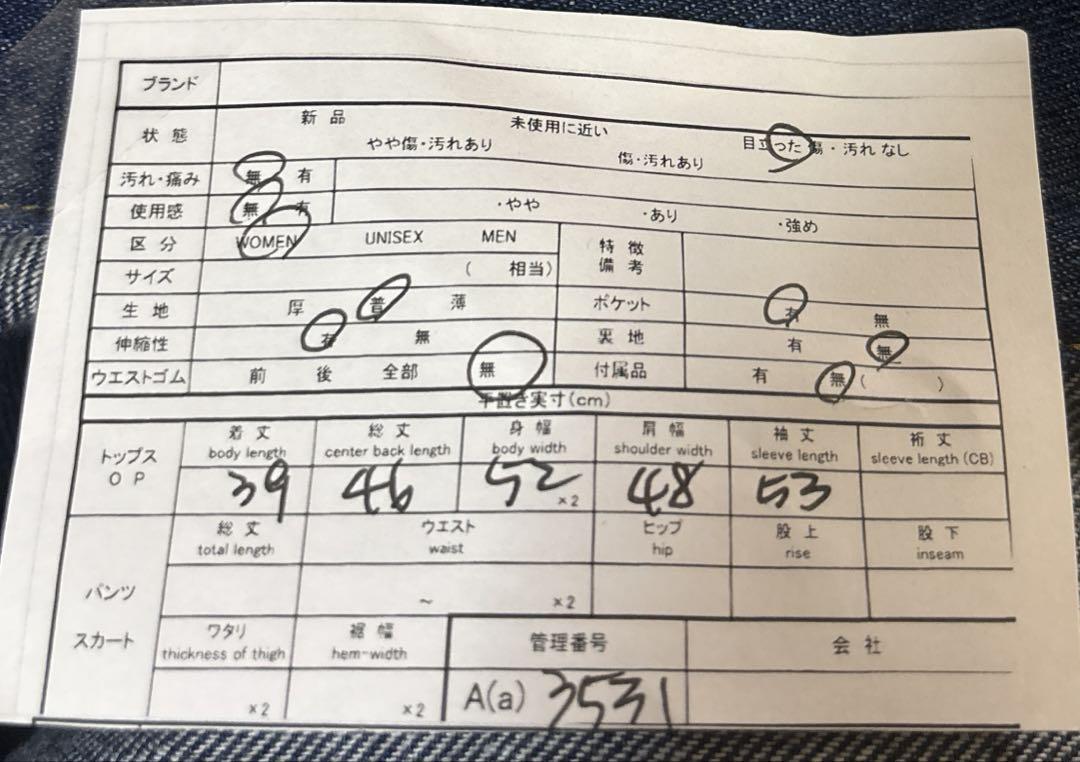 ブランド
状態 新品 未使用に近い 目立った傷・汚れなし
やや傷・汚れあり 傷・汚れあり
汚れ・痛み 無 有
使用感 無 有 ・やや ・あり ・強め
区分 WOMEN UNISEX MEN 特徴備考
サイズ ( 相当)
生地 厚 普 薄 ポケット 有 無
伸縮性 有 無 裏地 有 無
ウエストゴム 前 後 全部 無 付属品 有 無 ( )
平置き実寸(cm)
トップス OP
着丈 総丈 身幅 肩幅 袖丈 裄丈
body length center back length body width shoulder width sleeve length sleeve length (CB)
39 46 52 ×2 48 53
パンツ スカート
総丈 ウエスト ヒップ 股上 股下
total length waist hip rise inseam
~ ×2
ワタリ 裾幅 管理番号 会社
thickness of thigh hem-width
×2 ×2 A(a) 3531